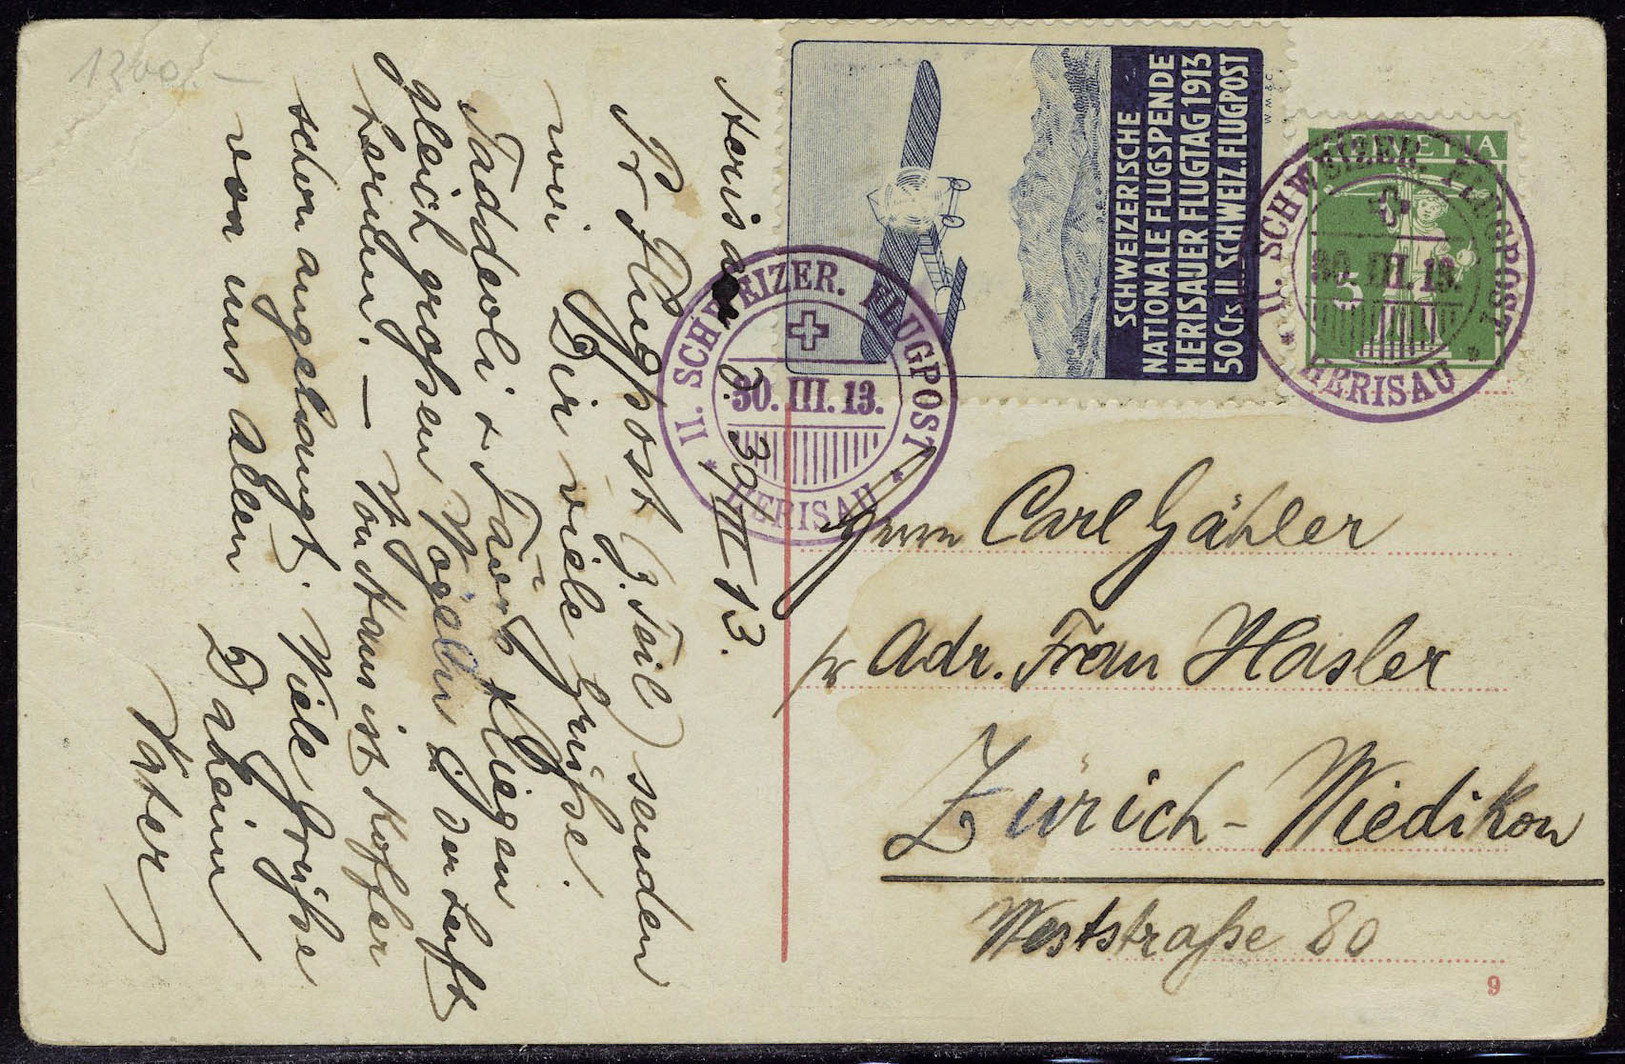 1200.–
Herisau d. 30/III 13.
Pr Flugpost (z. Teil) senden
wir Dir viele Grüße.
Taddeoli & Favre fliegen
gleich großen Vögeln i. der Luft
herum. – Von Stam ist Koffer
schon angelangt. Viele Grüße
von uns allen Daheim
Vater
SCHWEIZERISCHE
NATIONALE FLUGSPENDE
HERISAUER FLUGTAG 1913
50 Cts II. SCHWEIZ. FLUGPOST
W.M.&C.
HELVETIA
5
II. SCHWEIZER. FLUGPOST
30. III. 13.
* HERISAU *
II. SCHWEIZER. FLUGPOST
30. III. 13.
* HERISAU *
Herrn Carl Gähler
pr Adr. Frau Hasler
Zürich-Wiedikon
Weststraße 80
9